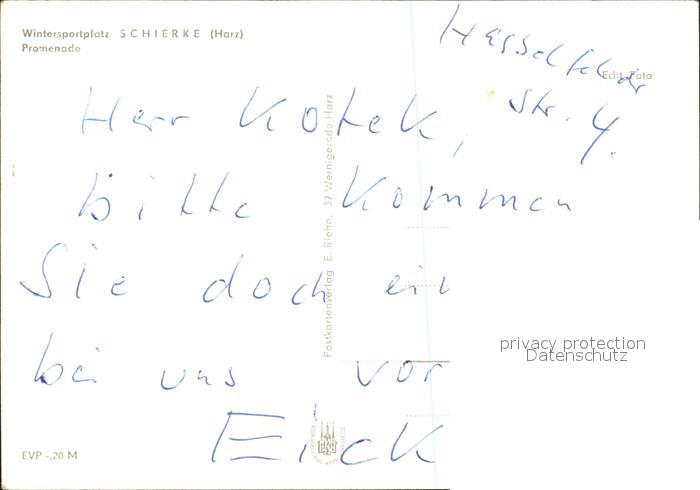 Wintersportplatz SCHIERKE (Harz)
Promenade
Echt Foto
Hasselfelder
Str. 4.
Herr Kotek,
bitte kommen
Sie doch ein
bei uns vor
Eick
Postkartenverlag E. Riehn, 37 Wernigerode-Harz
privacy protection
Datenschutz
EVP -,20 M